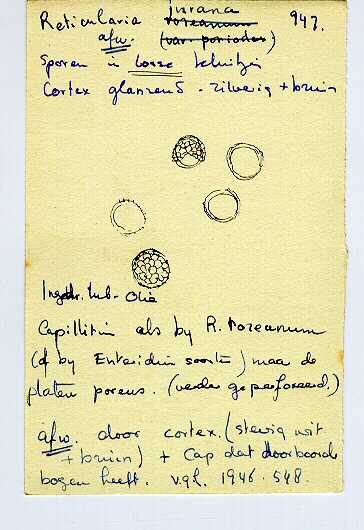 Reticularia jurana 947.
rozeanum
afw. (var. periodes)
Sporen in losse kluitjes
Cortex glanzend - zilverig + bruin
Olie
Capillitium als by R. rozeanum
(of by Enteridium soorten) maar de
platen poreus. (verder geperforeerd.)
afw. door cortex. (stevig wit
+ bruin) + Cap dat doorboorde
bogen heeft. vgl. 1946. 548.